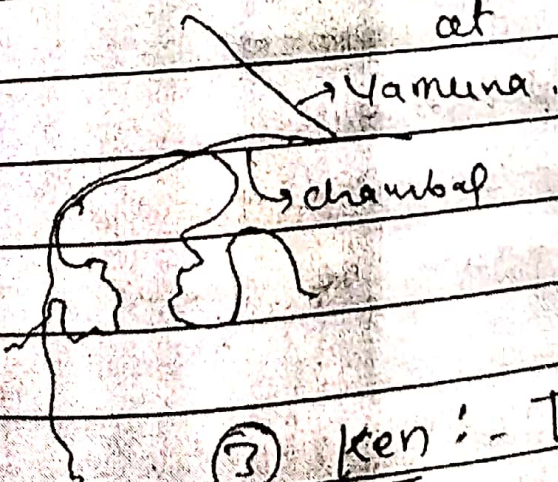 at
Yamuna.
chambal
③ Ken :- T